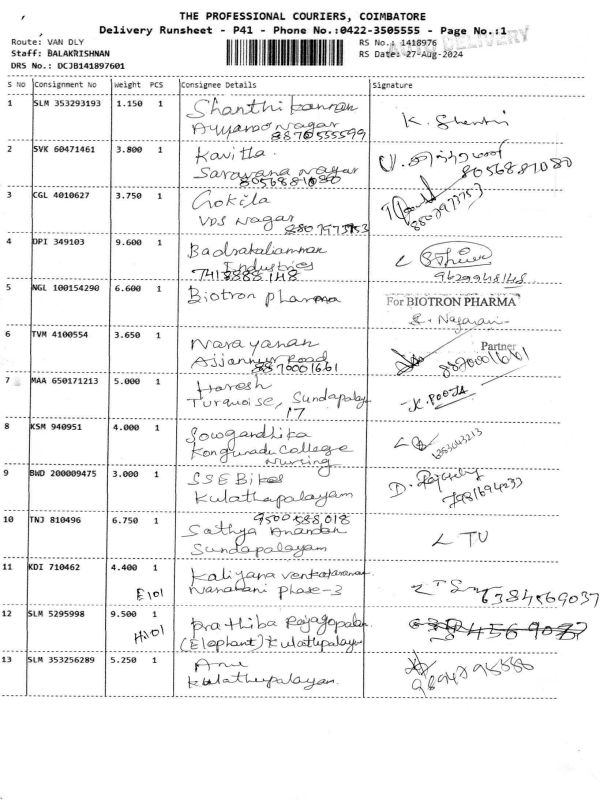 THE PROFESSIONAL COURIERS, COIMBATORE
Delivery Runsheet - P41 - Phone No.:0422-3505555 - Page No.:1
DELIVERY
Route: VAN DLY
RS No.: 1418976
Staff: BALAKRISHNAN
RS Date: 27-Aug-2024
DRS No.: DCJB141897601
S No Consignment No Weight PCS Consignee Details Signature
1 SLM 353293193 1.150 1 Shanthikannan
Nagar K. Shanthi
8870555599
2 SVK 60471461 3.800 1 Kavitha
Saravana Nagar
8056881080 8056881080
3 CGL 4010627 3.750 1 Gokila
VDS Nagar
8807973753 8807973753
4 DPI 349103 9.600 1 Badrakaliamman
Industries
7418888148 9429948148
5 NGL 100154290 6.600 1 Biotron pharma For BIOTRON PHARMA
Partner
6 TVM 4100554 3.650 1 Narayanan
Road
8870001661 8870001661
7 MAA 650171213 5.000 1 Haresh
Turquoise, Sundapalay K. POOJA
17
8 KSM 940951 4.000 1 Sowgandhika
Kongunadu College
Nursing 6383043213
9 BWD 200009475 3.000 1 SSE Bikes
Kulathupalayam
10 TNJ 810496 6.750 1 9500588018
Sathya Anandan
Sundapalayam TU
11 KDI 710462 4.400 1 Kaliyana
phase-3
E101 6384569037
12 SLM 5295998 9.500 1 Prathiba Rajagopalan
H101 (Elephant) Kulathupalaya
13 SLM 353256289 5.250 1 Anu
Kulathupalayam 9894795550